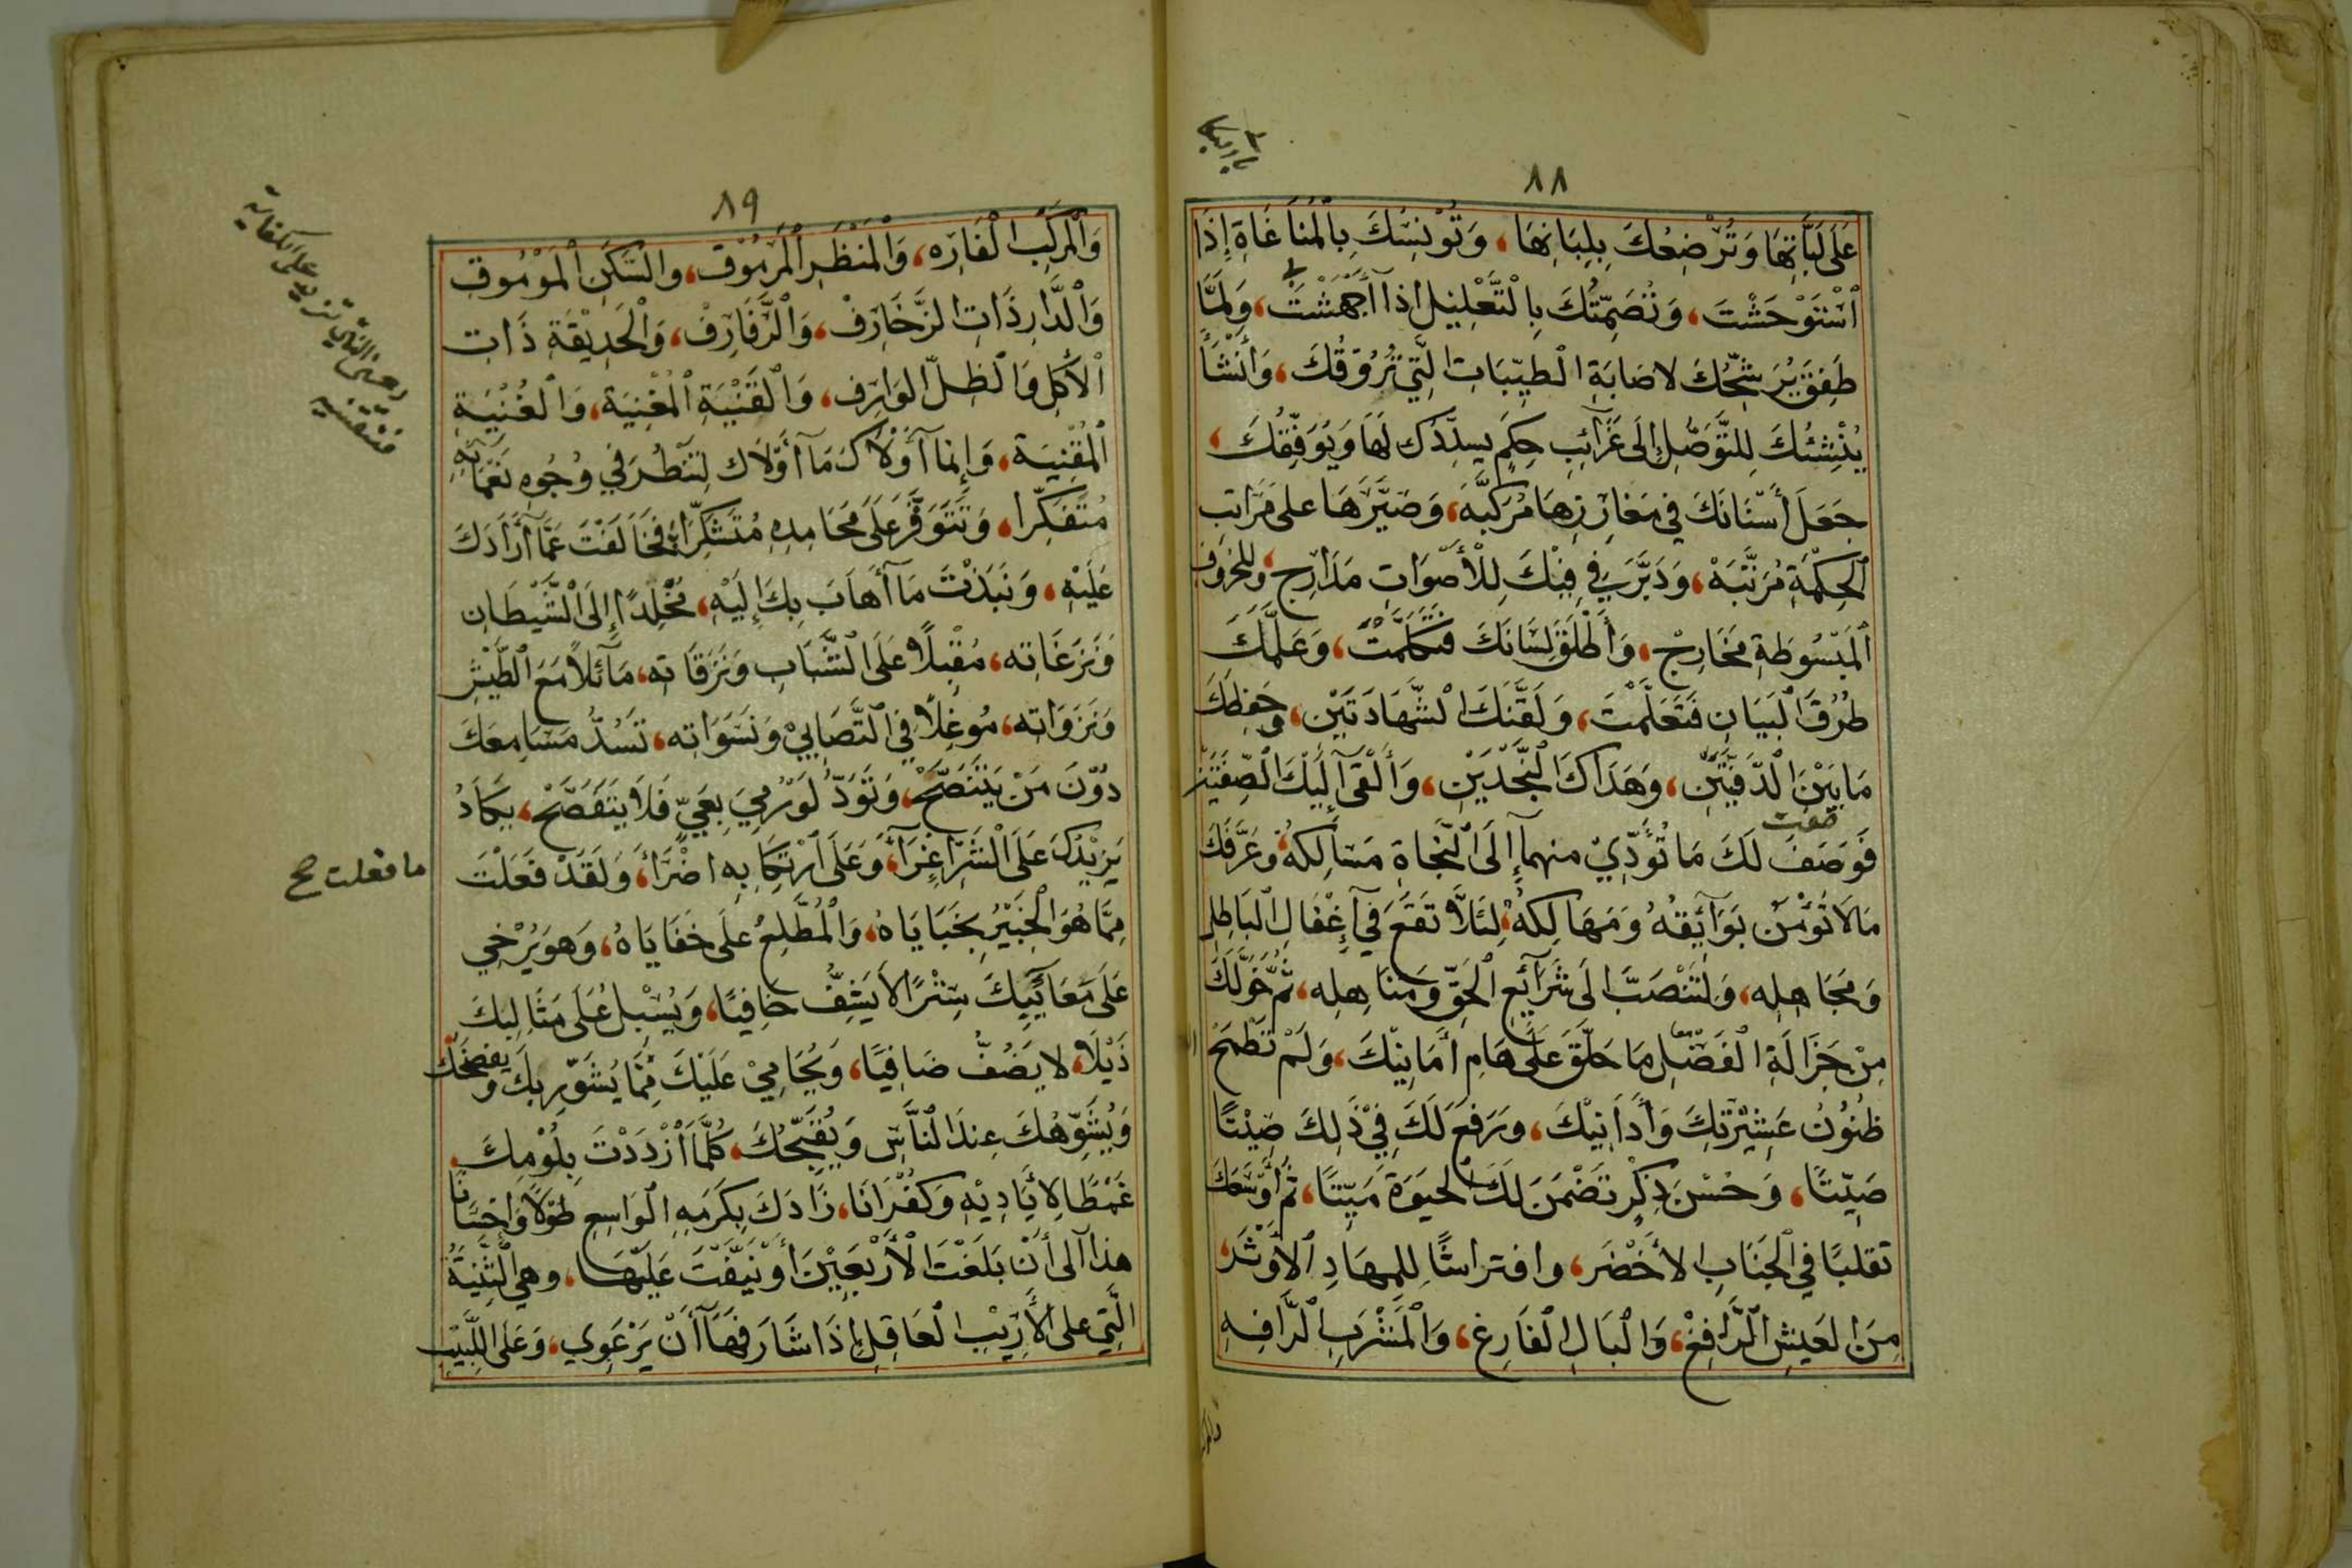 ٨٨
عَلَى لَبَّاتِهَا وَتُرْضِعُكَ بِلِبَانِهَا، وَتُوْنِسُكَ بِالْمُنَاغَاةِ إِذَا
اَسْتَوْحَشْتَ، وَتُصَمِّتُكَ بِالْتَّعْلِيْلِ اذا أَجْهَشْتَ، وَلمَّا
طَفِقَ يُرَشِّحُكَ لاصَابَةِ الْطَيِّبَاتِ الَّتِي تُرُوْقُكَ، وَأَنْشَأَ
يُنْشِئُكَ لِلتَّوَصُّلِ إِلَى غَرَآئِبِ حِكَمٍ يسدِّدُكَ لَهَا وَيُوَفِّقُكَ،
جَعَلَ أَسْنَانَكَ فِي مَغَارِزِهَا مُرَكَّبَهْ، وَصَيَّرَهَا على مَرَاتب
الْحِكْمَةِ مُرَتَّبَهْ، وَدَبَّرَ فِي فِيْكَ لِلْأَصْوَاتِ مَدَارِج، وللحُرُوفِ
الْمَبْسُوطَةِ مَخَارِجْ، وَأَطْلَقَ لِسَانَكَ فَتَكَلَّمْتَ، وَعَلَّمَكَ
طُرُقَ الْبَيَانِ فَتَعَلَّمْتَ، وَلَقَّنَكَ الْشَّهَادَتَيْنِ، وَحَفظَكَ
مَا بَيْنَ الْدَّفَّتَيْنِ، وَهَدَاكَ الْنَّجْدَيْنِ، وَأَلْقَى إِلَيْكَ الْصِّفَتَيْنِ
فَوَصَفَ لَكَ مَا تُؤَدِّيْ منهمآ إِلَى الْنَّجَاةِ مَسَالِكهُ، وَعَرَّفَكَ
مَا لَا تُؤْمَنُ بَوَآئِقُهُ وَمَهَالِكهُ، لِئَلَّا تَقَعَ فِي إِغْفَالِ الْبَاطِلِ
وَمَجَاهِلِه، وَلتَنْصَبَّ الَى شَرَآئِعِ الْحَقِّ وَمَنَاهِلِه، ثُمَّ خَوَّلَكَ
مِنْ جَزَالَةِ الْفَضْلِ مَا حَلَّقَ عَلَى هَامِ أَمَانِيْكَ، وَلَمْ تَطْمَحْ
ظُنُوْنُ عَشِيْرَتِكَ وَأَدَانِيْكَ، وَرَفَعَ لَكَ فِيْ ذَلِكَ صِيْتًا
صَيِّتًا، وَحُسْنَ ذِكْرٍ تَضْمَنَ لَكَ الْحيَوَةَ مَيِّتًا، ثُمَّ أَوْسَعَكَ
تقلبًا فِي الْجَنَابِ الأَخْضَرِ، وافتراشًا لِلمِهَادِ الاوْثَرِ
مِنَ الْعَيشِ الْرَّافِغْ، وَالْبَالِ الْفَارِغ، وَالْمَشْرَبِ الْرَّافِهِ
٨٩
وَالْمَرْكَبِ الْفَارِه، وَالْمَنْظَرِ الْمَرْمُوْقِ، والسَّكَنِ الْمَوْمُوقِ
وَالْدَّارِ ذَاتِ الزَّخَارِفْ، وَالْرَّفَارِفْ، وَالْحَدِيْقَةِ ذَاتِ
الْأُكُلِ وَالْظِلِّ الوَارِف، وَالْقَنْيَةِ الْمُغْنِيَة، وَالْغُنْيَةِ
الْمُقْنِيَة، وَإِنمَا آوْلَاكَ مَا أَوْلَاكَ لِتَنْظُرَ فِي وُجُوهِ نَعْمَائِهِ
مُتَفَكِّرا، وَتَتَوَفَّرَ عَلَى مَحَامِدِهِ مُتَشَكِّرًا، فَخَالَفْتَ عَمَّا أَرَادَكَ
عَلَيْهِ، وَنَبَذْتَ مَا أَهَابَ بِكَ إِلَيْهِ، مُخْلِدًا إِلَى الْشَّيْطَانِ
وَنَزَغَاتِه، مُقْبِلًا عَلَى الْشَّبَابِ وَنَزَقَاتِه، مَآئلًا مَعَ الطَّيْشِ
وَنَزَوَاتِه، مُوغِلًا فِي الْتَّصَابِيْ وَنَشَوَاتِه، تَسُدُّ مَسَامِعَكَ
دُوْنَ مَنْ يَتَنَصَّحْ، وَتَوَدُّ لَوْ رُمِيَ بِعَيٍّ فَلَا يَتَفَصَّحْ، يَكَادُ
يَزِيْدُكَ عَلَى الْشَّرِّ إغْرَآءً، وَعَلَى ارْتِكَابِهِ اضْرَآءً، وَلَقَدْ فَعَلْتَ
ما فعلت صح
مِمَّا هُوَ الْخَبِيْرُ بِخَبَايَاهُ، وَالْمُطَّلِعُ علَى خَفَايَاهُ، وَهوَ يُرْخِي
عَلَى مَعَائِبِكَ سِتْرًا لَا يَشِفُّ خافِيًا، وَيُسْبِلُ عَلَى مَثَالِبِكَ
ذَيْلَا، لا يَصُفُّ ضَافِيًا، وَيُحَامِيْ عَلَيْكَ مِمَّا يُشَوِّر بِكَ وَيفضحُكَ
وَيُشَوِّهُكَ عِندَ النَّاسِ وَيُقَبِّحُكَ، كُلَّمَا ازْدَدْتَ بِلُوْمِكَ
غَمْطًا لِأَيَادِيْهِ وَكُفْرَانَا، زَادَكَ بِكَرَمِهِ الْوَاسِعِ طَوْلًا وَإِحْسَانًا
هذا آلى أَنْ بَلَغْتَ الْأَرْبَعِيْنَ أَوْ نَيَّفْتَ عَلَيْهَا، وهي الْثَّنِيَّةُ
الَّتِي على الْأَرِيْبِ الْعَاقِلِ إِذَا شَارَفَهَا أَنْ يَرْعَوِي، وَعَلَى اللَّبِيْبِ